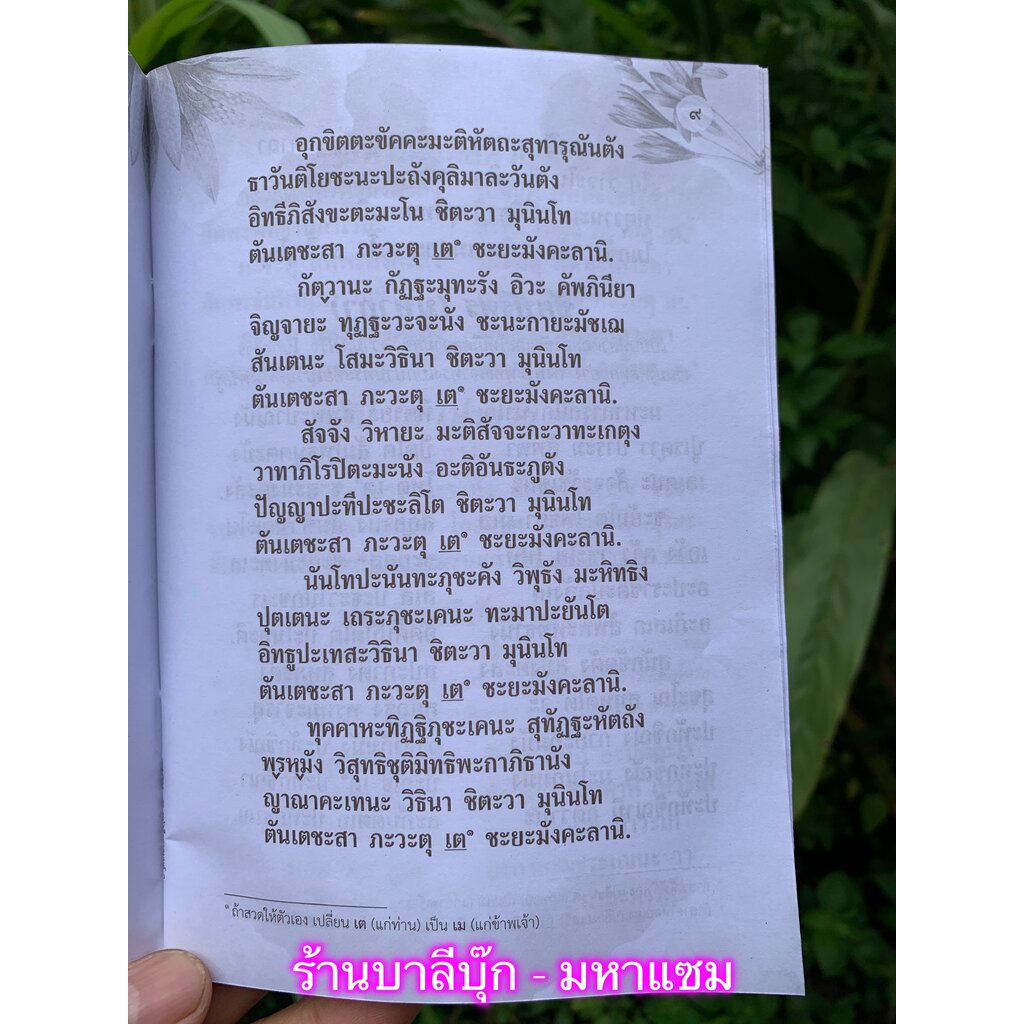 ๙
อุกขิตตะขัคคะมะติหัตถะสุทารุณันตัง
ธาวันติโยชะนะปะถังคุลิมาละวันตัง
อิทธีภิสังขะตะมะโน ชิตะวา มุนินโท
ตันเตชะสา ภะวะตุ เต* ชะยะมังคะลานิ.
กัต๎วานะ กัฏฐะมุทะรัง อิวะ คัพภินียา
จิญจายะ ทุฏฐะวะจะนัง ชะนะกายะมัชเฌ
สันเตนะ โสมะวิธินา ชิตะวา มุนินโท
ตันเตชะสา ภะวะตุ เต* ชะยะมังคะลานิ.
สัจจัง วิหายะ มะติสัจจะกะวาทะเกตุง
วาทาภิโรปิตะมะนัง อะติอันธะภูตัง
ปัญญาปะทีปะชะลิโต ชิตะวา มุนินโท
ตันเตชะสา ภะวะตุ เต* ชะยะมังคะลานิ.
นันโทปะนันทะภุชะคัง วิพุธัง มะหิทธิง
ปุตเตนะ เถระภุชะเคนะ ทะมาปะยันโต
อิทธูปะเทสะวิธินา ชิตะวา มุนินโท
ตันเตชะสา ภะวะตุ เต* ชะยะมังคะลานิ.
ทุคคาหะทิฏฐิภุชะเคนะ สุทัฏฐะหัตถัง
พ๎รห๎มัง วิสุทธิชุติมิทธิพะกาภิธานัง
ญาณาคะเทนะ วิธินา ชิตะวา มุนินโท
ตันเตชะสา ภะวะตุ เต* ชะยะมังคะลานิ.
* ถ้าสวดให้ตัวเอง เปลี่ยน เต (แก่ท่าน) เป็น เม (แก่ข้าพเจ้า)
ร้านบาลีบุ๊ก - มหาแซม